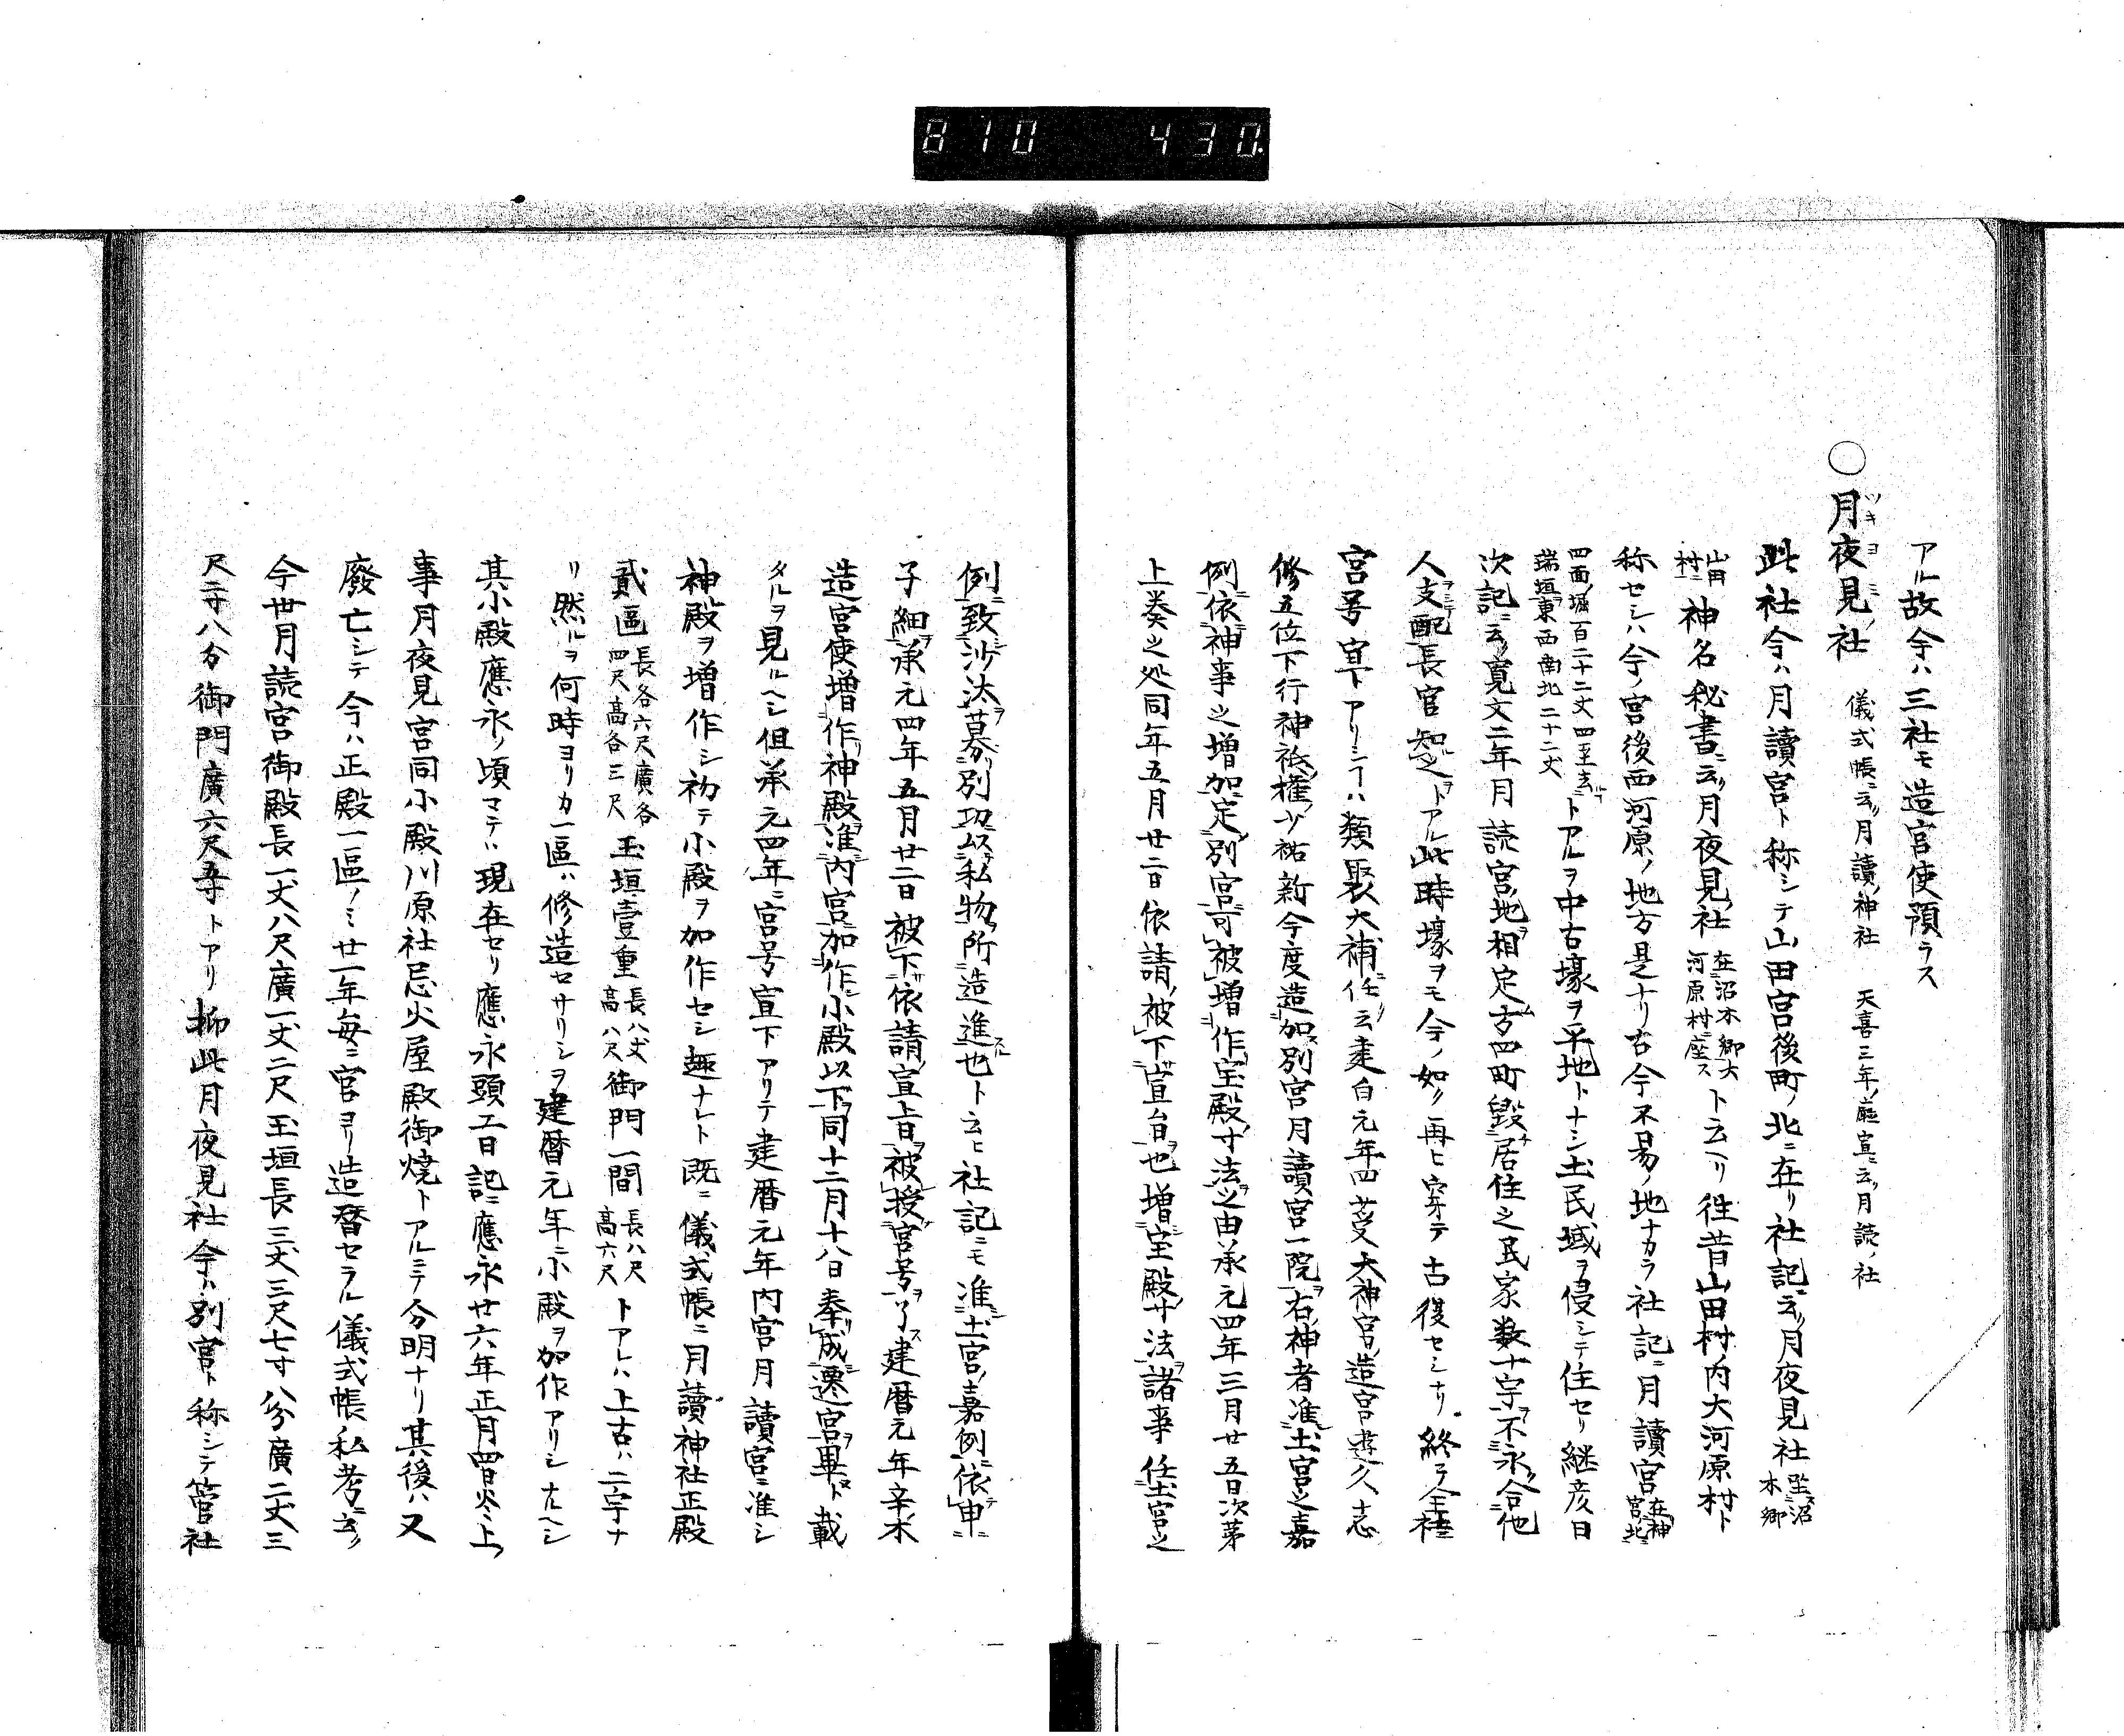 810 430.
アル故今ハ三社モ造宮使預ラス
○月夜見社 儀式帳ニ云月讀神社 天喜三年廳宣ニ云月読ノ社
ツキヨミノ
此社今ハ月讀宮ト称シテ山田宮後町ノ北ニ在リ社記ニ云月夜見社 坐沼木郷
山田村ニ 神名秘書ニ云月夜見社 在沼木郷大河原村ニ座ス ト云ヘリ往昔山田村ノ内大河原村ト
称セシハ今ノ宮後西河原ノ地方是ナリ古今不易ノ地ナカラ社記ニ月讀宮 在神宮北
四面ノ堀百二十二丈四至去端垣東西南北二十二丈 トアルヲ中古壕ヲ平地トナシ土民域ヲ侵シテ住セリ継彦日
次記ニ云寛文二年月読宮地相定方四町毀居住之民家数十宇不永令他
人支配長官智之トアル此時壕ヲモ今ノ如ク再ヒ穿テ古復セシナリ終テ全社
宮号宣下アリシ ハ類聚大補任ニ云 元年四 大神宮造宮遊久志
修五位下行神祇權少祐新今度造加別宮月讀宮一院右神者准土宮之嘉
例依神事之増加定別宮可被増作宝殿寸法之由承元四年三月廿五日次第
上奏之処同年五月廿二日依請被下宣旨也増宝殿寸法諸事任土宮之
例致沙汰募別功以私物所造進也ト云ヒ社記ニモ准土宮ノ嘉例依申
子細承元四年五月廿二日被下依請宣旨被授宮号了建暦元年辛未
造宮使増作神殿准内宮加作小殿以下同十二月十八日奉成遷宮畢ト載
タルヲ見ルヘシ但承元四年ニ宮号宣下アリテ建暦元年内宮月讀宮ニ准シ
神殿ヲ増作シ初テ小殿ヲ加作セシ趣ナレト既ニ儀式帳ニ月讀神社正殿
貳區 長各六尺廣各四尺高各三尺 玉垣壹重 長八丈高八尺 御門一間 長八尺高六尺 トアレハ上古ハ二宇ナ
リ然ルヲ何時ヨリカ一區ハ修造セサリシヲ建暦元年小殿ヲ加作アリシナルヘシ
其小殿應永ノ頃マテハ現在セリ應永頭工日記ニ應永廿六年正月四日炎上
事月夜見宮同小殿川原社忌火屋殿御焼トアルニテ分明ナリ其後ハ又
廢亡シテ今ハ正殿一區ノミ廿一年毎ニ官ヨリ造替セラル儀式帳私考ニ云
今世月読宮御殿長一丈八尺廣一丈二尺玉垣長三丈三尺七寸八分廣二丈三
尺二寸八分御門廣六尺五寸トアリ抑此月夜見社今ハ別宮ト称シテ管社